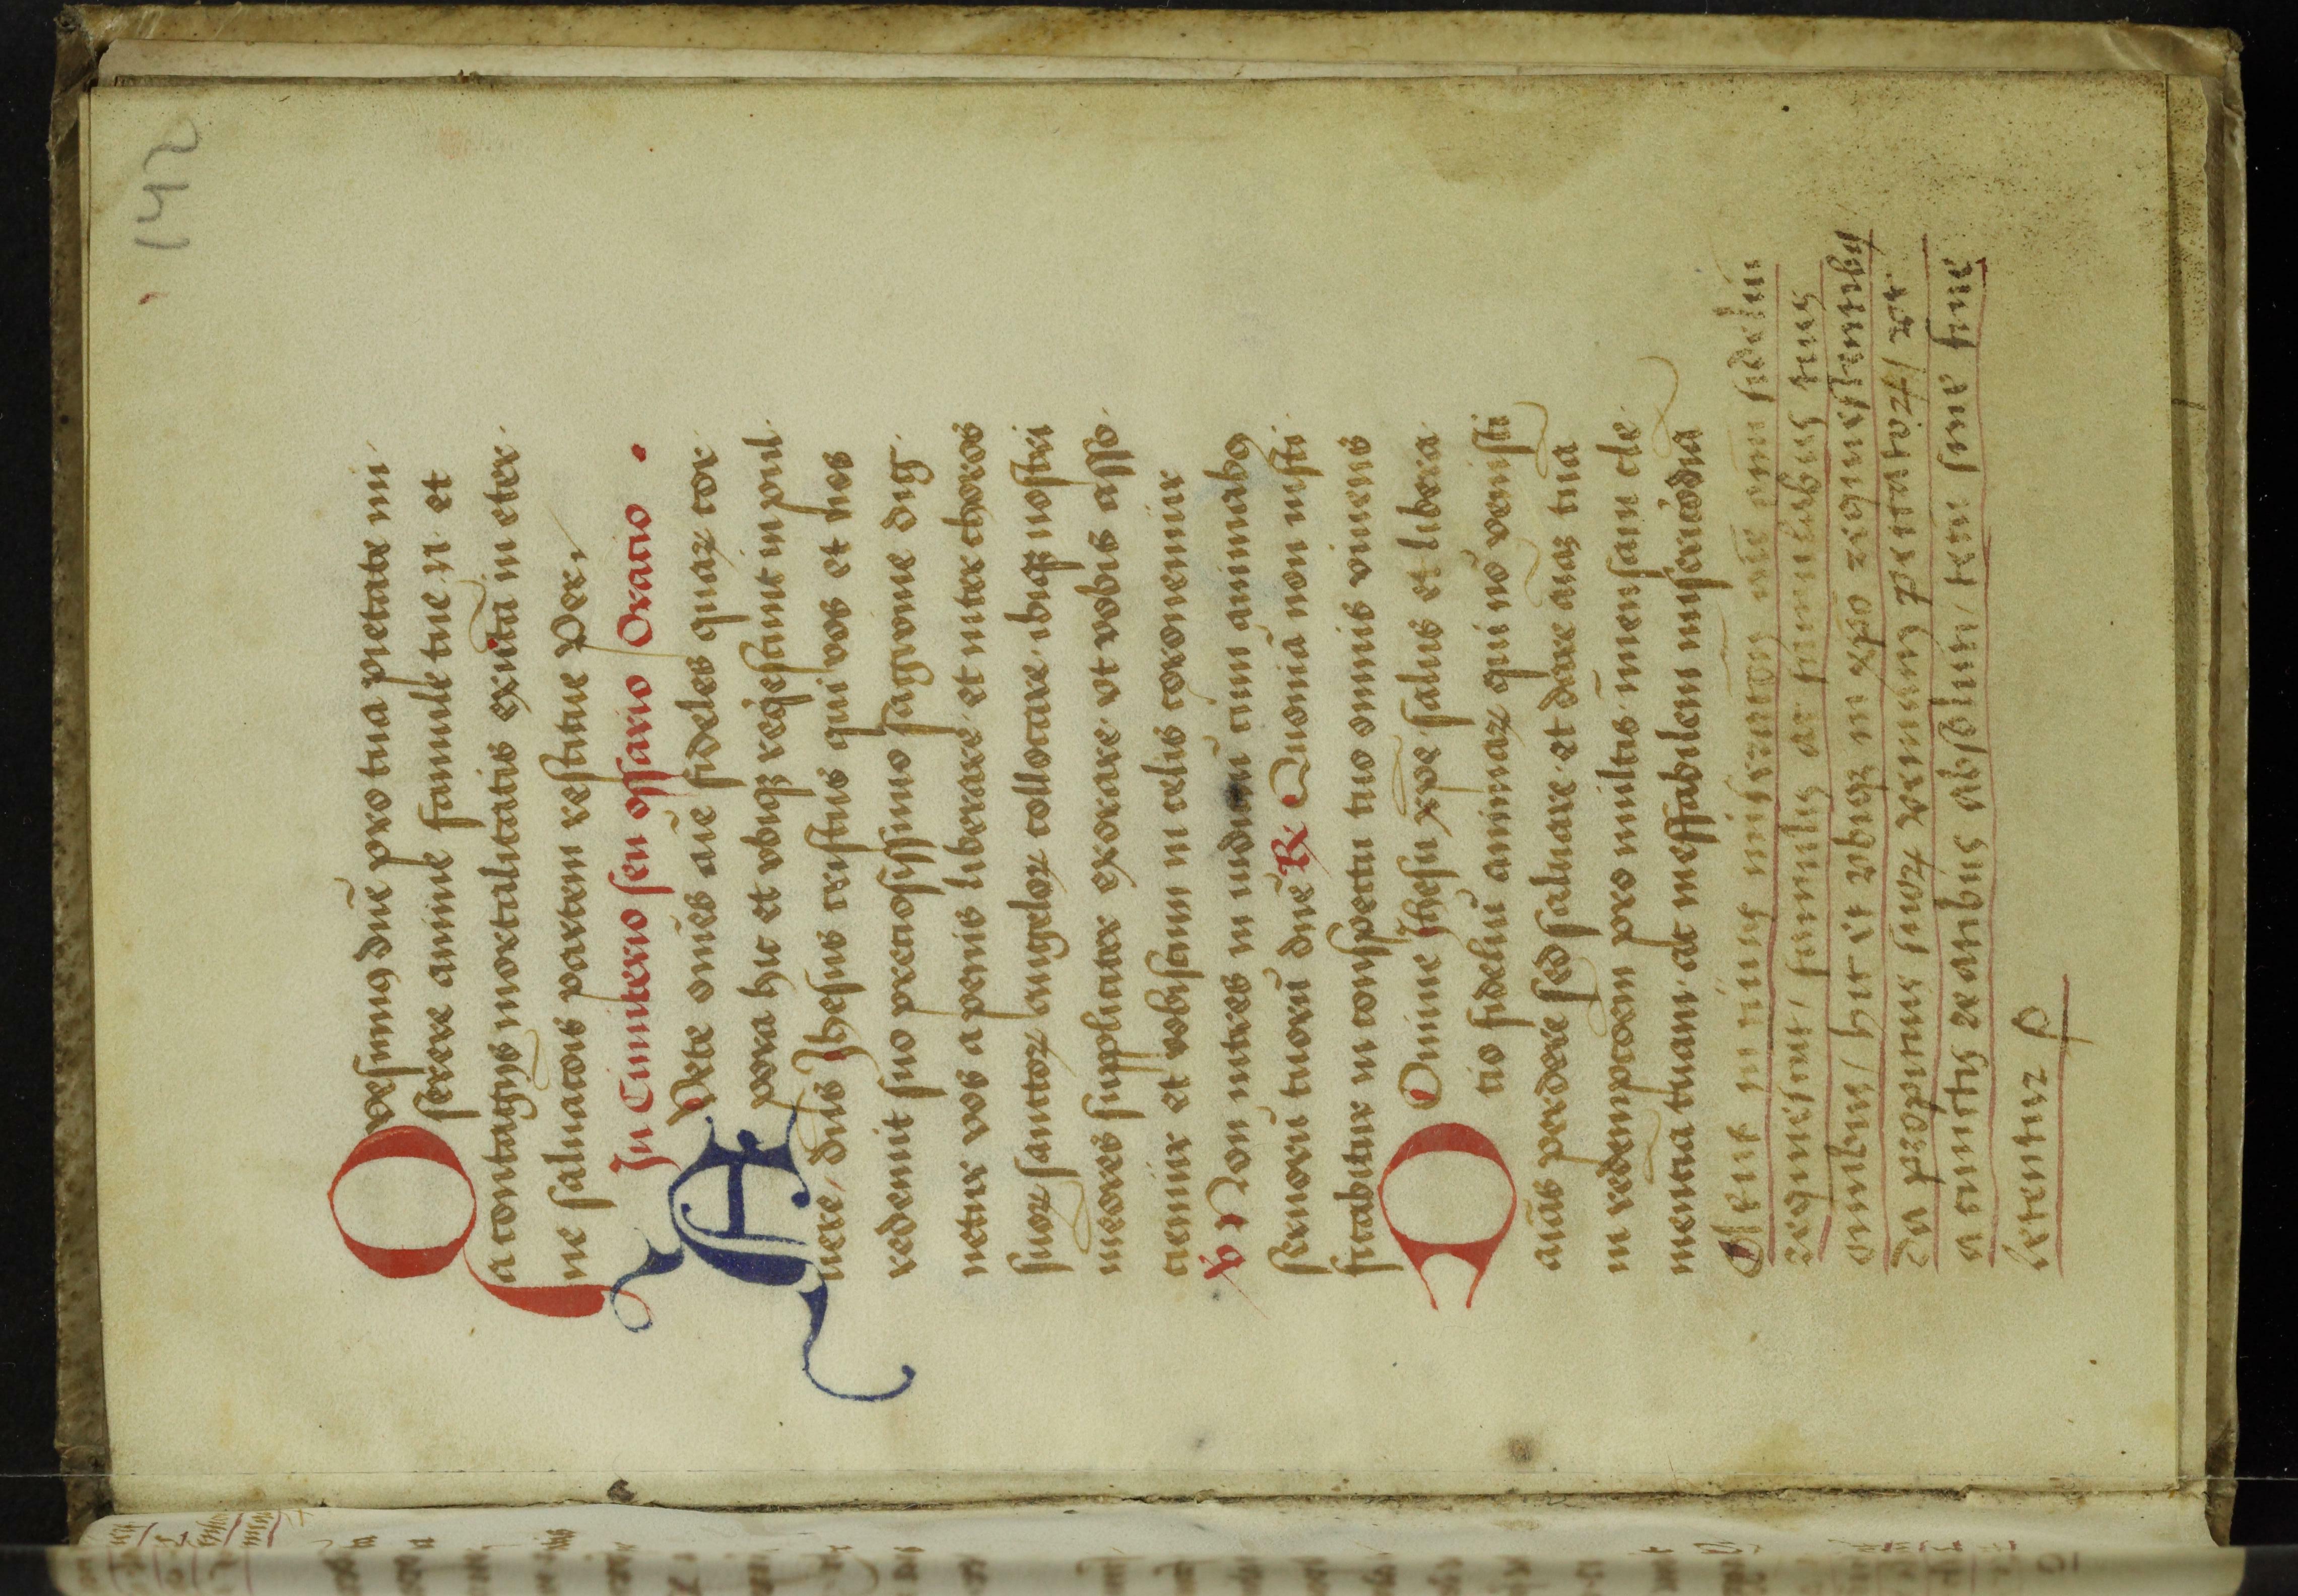 142
Qvesumꝯ dn̄e pro tua pietate mi
serere anime famule tue .n. et
a contagijs mortalitatis exuta in eter
ne saluacois partem restitue Per,
In Cimiterio seu ossario Oracio .
Avete om̄es aīe fideles quaꝝ cor
pora hic et vbiqꝫ reqͥescunt in pul
uere, dn̄s Jhesus cristus qui vos et nos
redemit suo preciosissimo sagwine dig
netur vos a penis liberare et inter choros
suoꝝ sanctoꝝ angeloꝝ collocare ibiqꝫ nostri
memores suppliciter exorare vt vobis asso
ciemur et vobiscum in celis coronemur
V Non intres in iudiciū cum animabꝯ
seruorū tuorū dn̄e R Quoniā non iusti
ficabitur in conspectu tuo omnis viuens
Domine Jhesu xp̄e salus et libera
tio fideliū animaꝝ qui nō venisti
aīas perdere sed saluare et dare aīaz tuā
in redempcoem pro multis īmensam cle
mencia tuam ac ineffabilem mīsericōdiā
requiescunt / famulis ac famulabus tuis
omnibus / hic et vbiqꝫ in xp̄o requiescentibꝯ
da propicius suoꝝ veniam peccatoꝝ / vt
a cunctis reatibus absoluti / tecū sine fine
letentur P